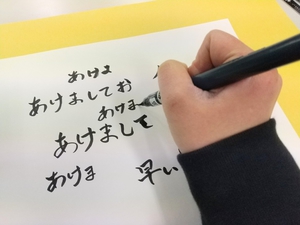 あけま
あけましてお
あけま
あけまして
あけま 早い